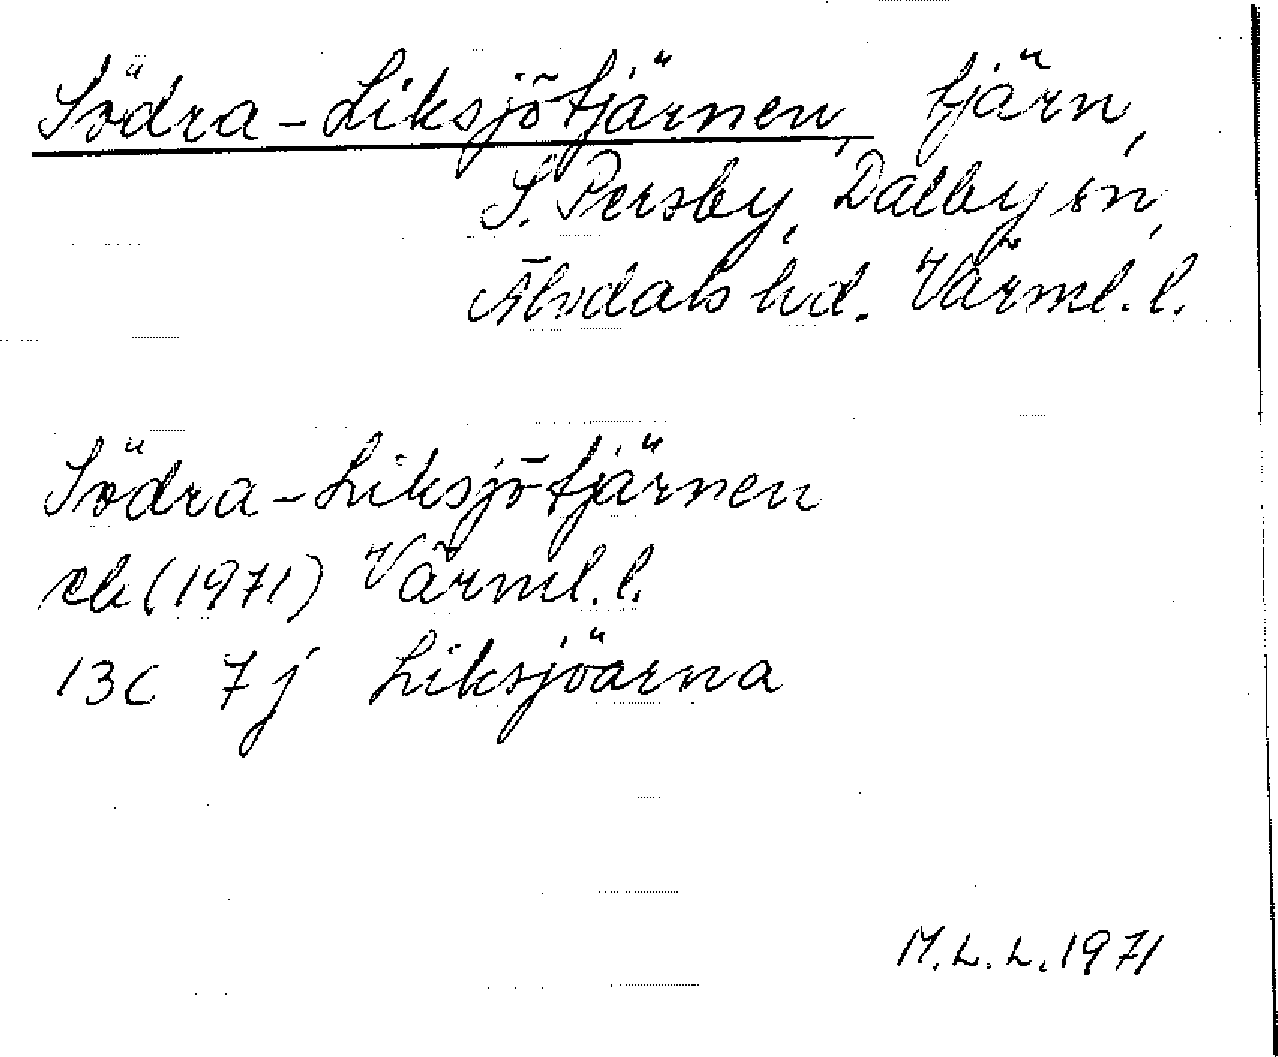 Södra-Liksjötjärnen, tjärn,
S. Persby, Dalby sn,
Älvdals hd. Värml. l.
Södra-Liksjötjärnen
ek (1971) Värml. l.
13C 7j Liksjöarna
M.L.L. 1971